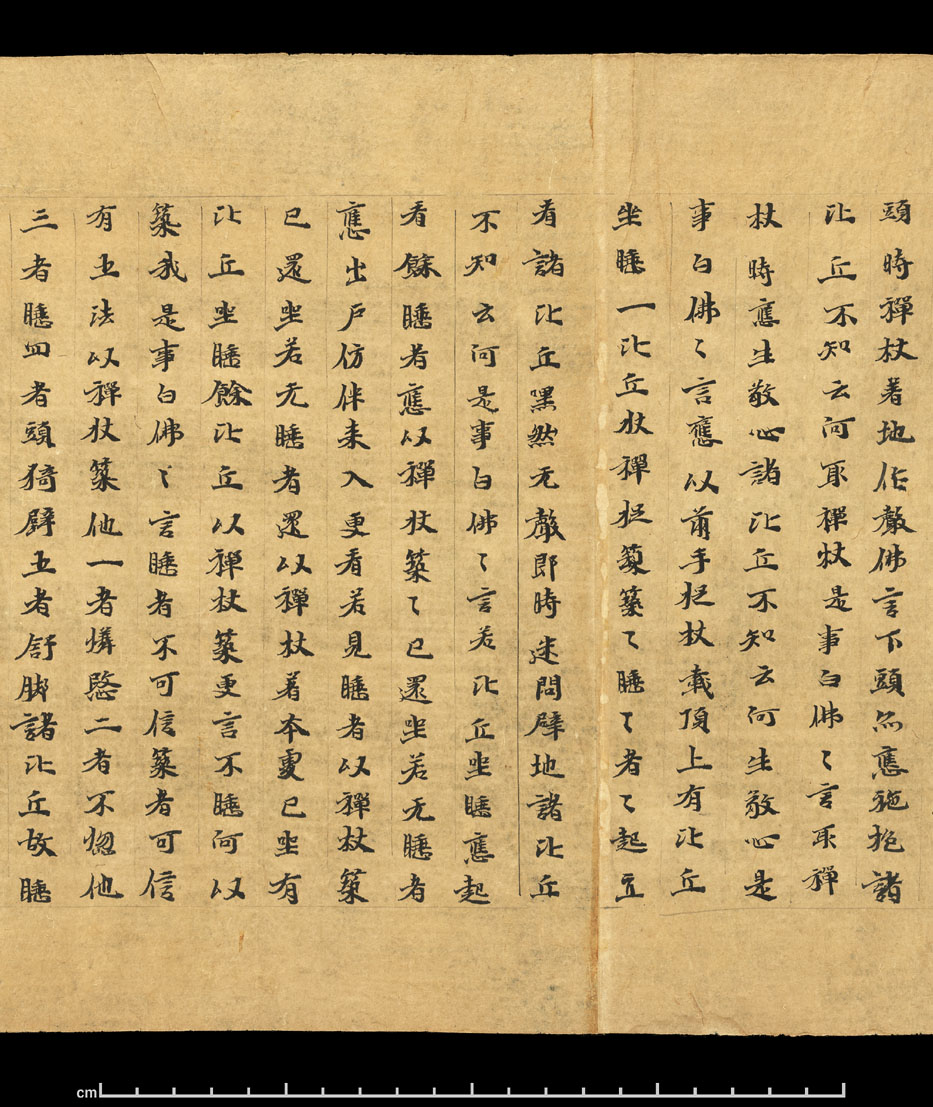 頭時禪杖著地作聲佛言下頭亦應施抱諸
比丘不知云何取禪杖是事白佛〻言取禪
杖時應生敬心諸比丘不知云何生敬心是
事白佛〻言應以兩手捉杖戴頂上有比丘
坐睡一比丘杖禪捉築築〻睡〻者〻起立
看諸比丘黑然无聲即時迷悶躃地諸比丘
不知云何是事白佛〻言若比丘坐睡應起
看餘睡者應以禪杖築〻已還坐若无睡者
應出戶仿佯来入更看若見睡者以禪杖築
已還坐若无睡者還以禪杖著本處已坐有
比丘坐睡餘比丘以禪杖築更言不睡何以
築我是事白佛〻言睡者不可信築者可信
有五法以禪杖築他一者憐愍二者不惱他
三者睡四者頭猗壁五者舒脚諸比丘故睡
cm